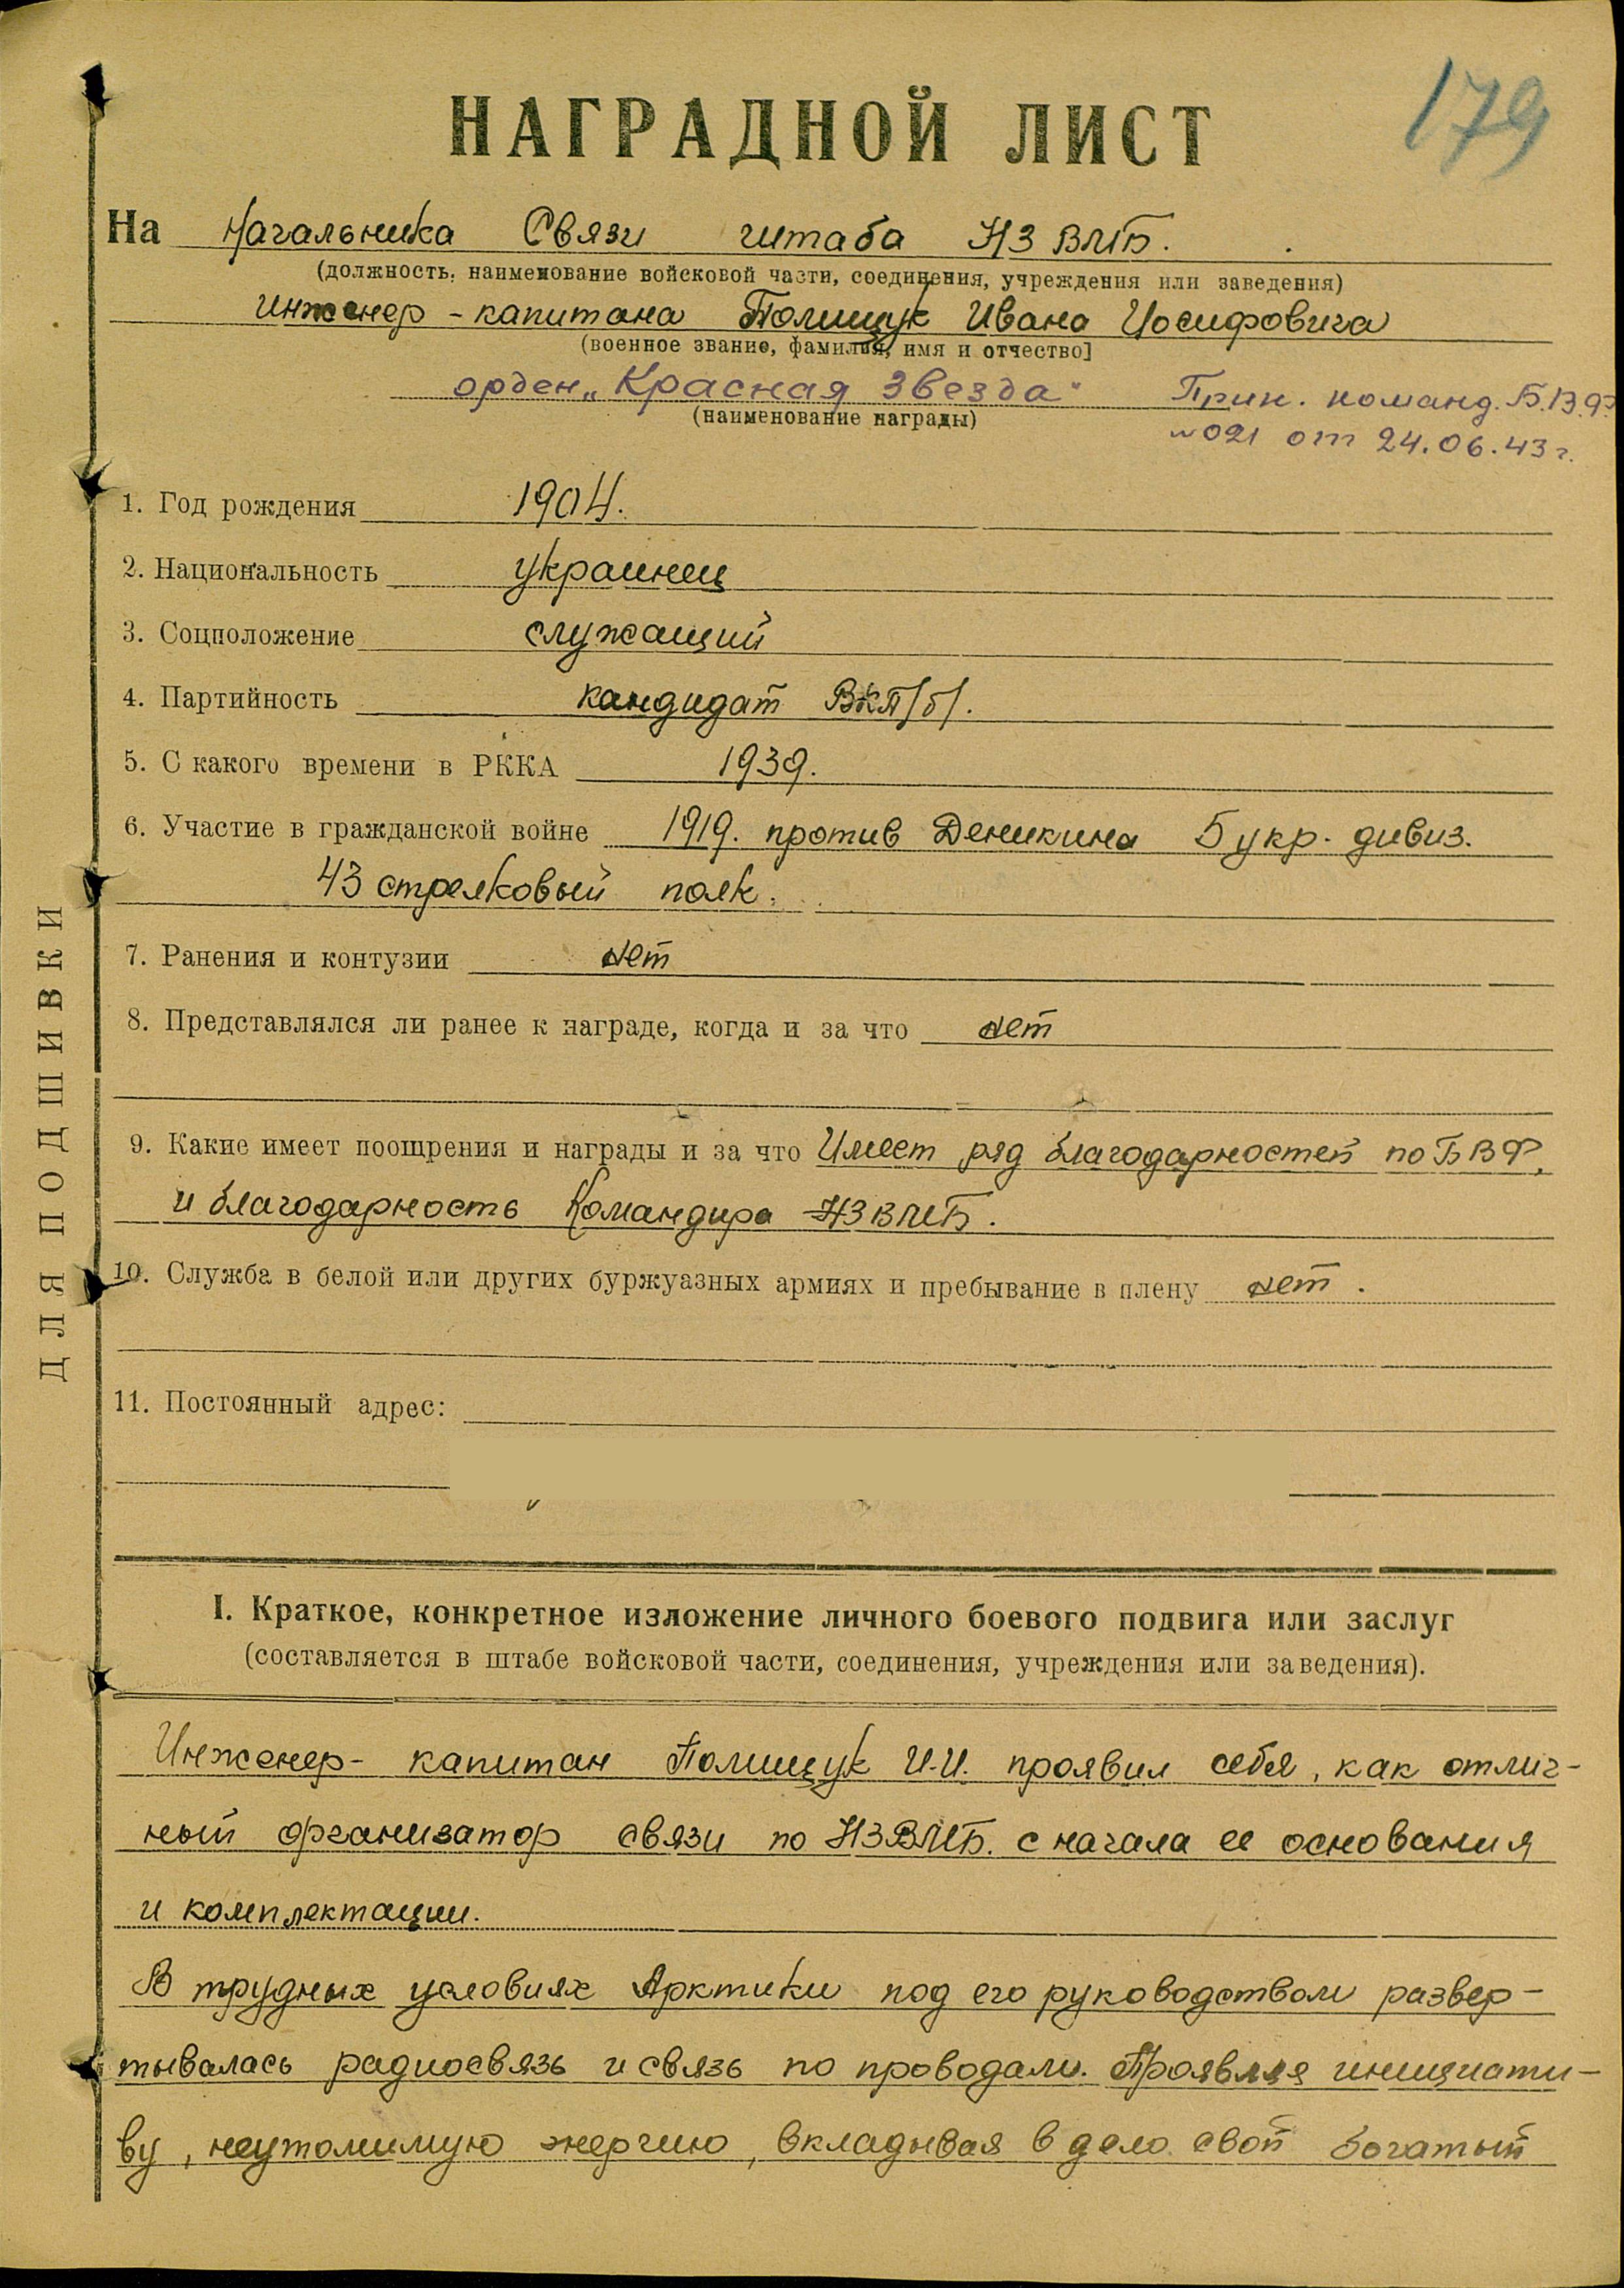 179
НАГРАДНОЙ ЛИСТ
На Начальника Связи штаба НЗ ВМБ.
(должность, наименование войсковой части, соединения, учреждения или заведения)
инженер-капитана Полищук Ивана Иосифовича
(военное звание, фамилия, имя и отчество]
орден „Красная Звезда" Прик. команд. Б.В.Ф.
(наименование награды) №021 от 24.06.43г.
1. Год рождения 1904.
2. Национальность украинец
3. Соцположение служащий
4. Партийность кандидат ВКП/б/.
5. С какого времени в РККА 1939.
6. Участие в гражданской войне 1919. против Деникина 5 укр. дивиз.
43 стрелковый полк.
7. Ранения и контузии нет
8. Представлялся ли ранее к награде, когда и за что нет
9. Какие имеет поощрения и награды и за что Имеет ряд благодарностей по БВФ,
и благодарность Командира НЗВМБ.
10. Служба в белой или других буржуазных армиях и пребывание в плену нет.
11. Постоянный адрес:
ДЛЯ ПОДШИВКИ
I. Краткое, конкретное изложение личного боевого подвига или заслуг
(составляется в штабе войсковой части, соединения, учреждения или заведения).
Инженер-капитан Полищук И.И. проявил себя, как отлич-
ный организатор связи по НЗВМБ. с начала ее основания
и комплектации.
В трудных условиях Арктики под его руководством развер-
тывалась радиосвязь и связь по проводам. Проявляя инициати-
ву, неутомимую энергию, вкладывая в дело свой богатый